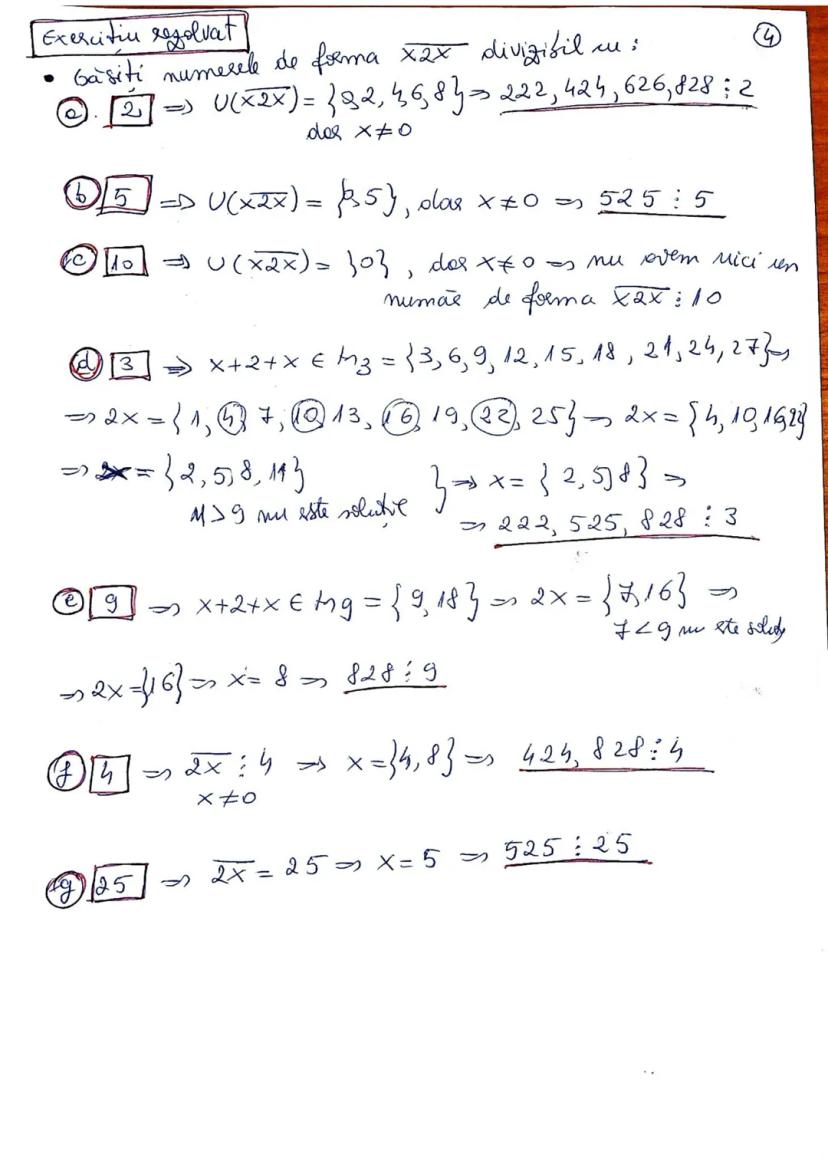 Exercițiu rezolvat
4
• Găsiți numerele de forma x2x divizibil cu:
a. 2 => U(x2x) = {0,2,4,6,8} => 222, 424, 626, 828 ⋮ 2
dar x≠0
b 5 => U(x2x) = {0,5}, dar x≠0 => 525 ⋮ 5
c 10 => U(x2x) = {0}, dar x≠0 => nu avem nici un
număr de forma x2x ⋮ 10
d 3 => x+2+x ∈ M3 = {3, 6, 9, 12, 15, 18, 21, 24, 27} =>
=> 2x = {1, 4, 7, 10, 13, 16, 19, 22, 25} => 2x = {4, 10, 16, 22}
=> x = {2, 5, 8, 11} } => x = {2, 5, 8} =>
11 > 9 nu este soluție => 222, 525, 828 ⋮ 3
e 9 => x+2+x ∈ M9 = {9, 18} => 2x = {7, 16} =>
7 < 9 nu este soluț
=> 2x = {16} => x = 8 => 828 ⋮ 9
f 4 => 2x ⋮ 4 => x = {4, 8} => 424, 828 ⋮ 4
x≠0
g 25 => 2x = 25 => x = 5 => 525 ⋮ 25